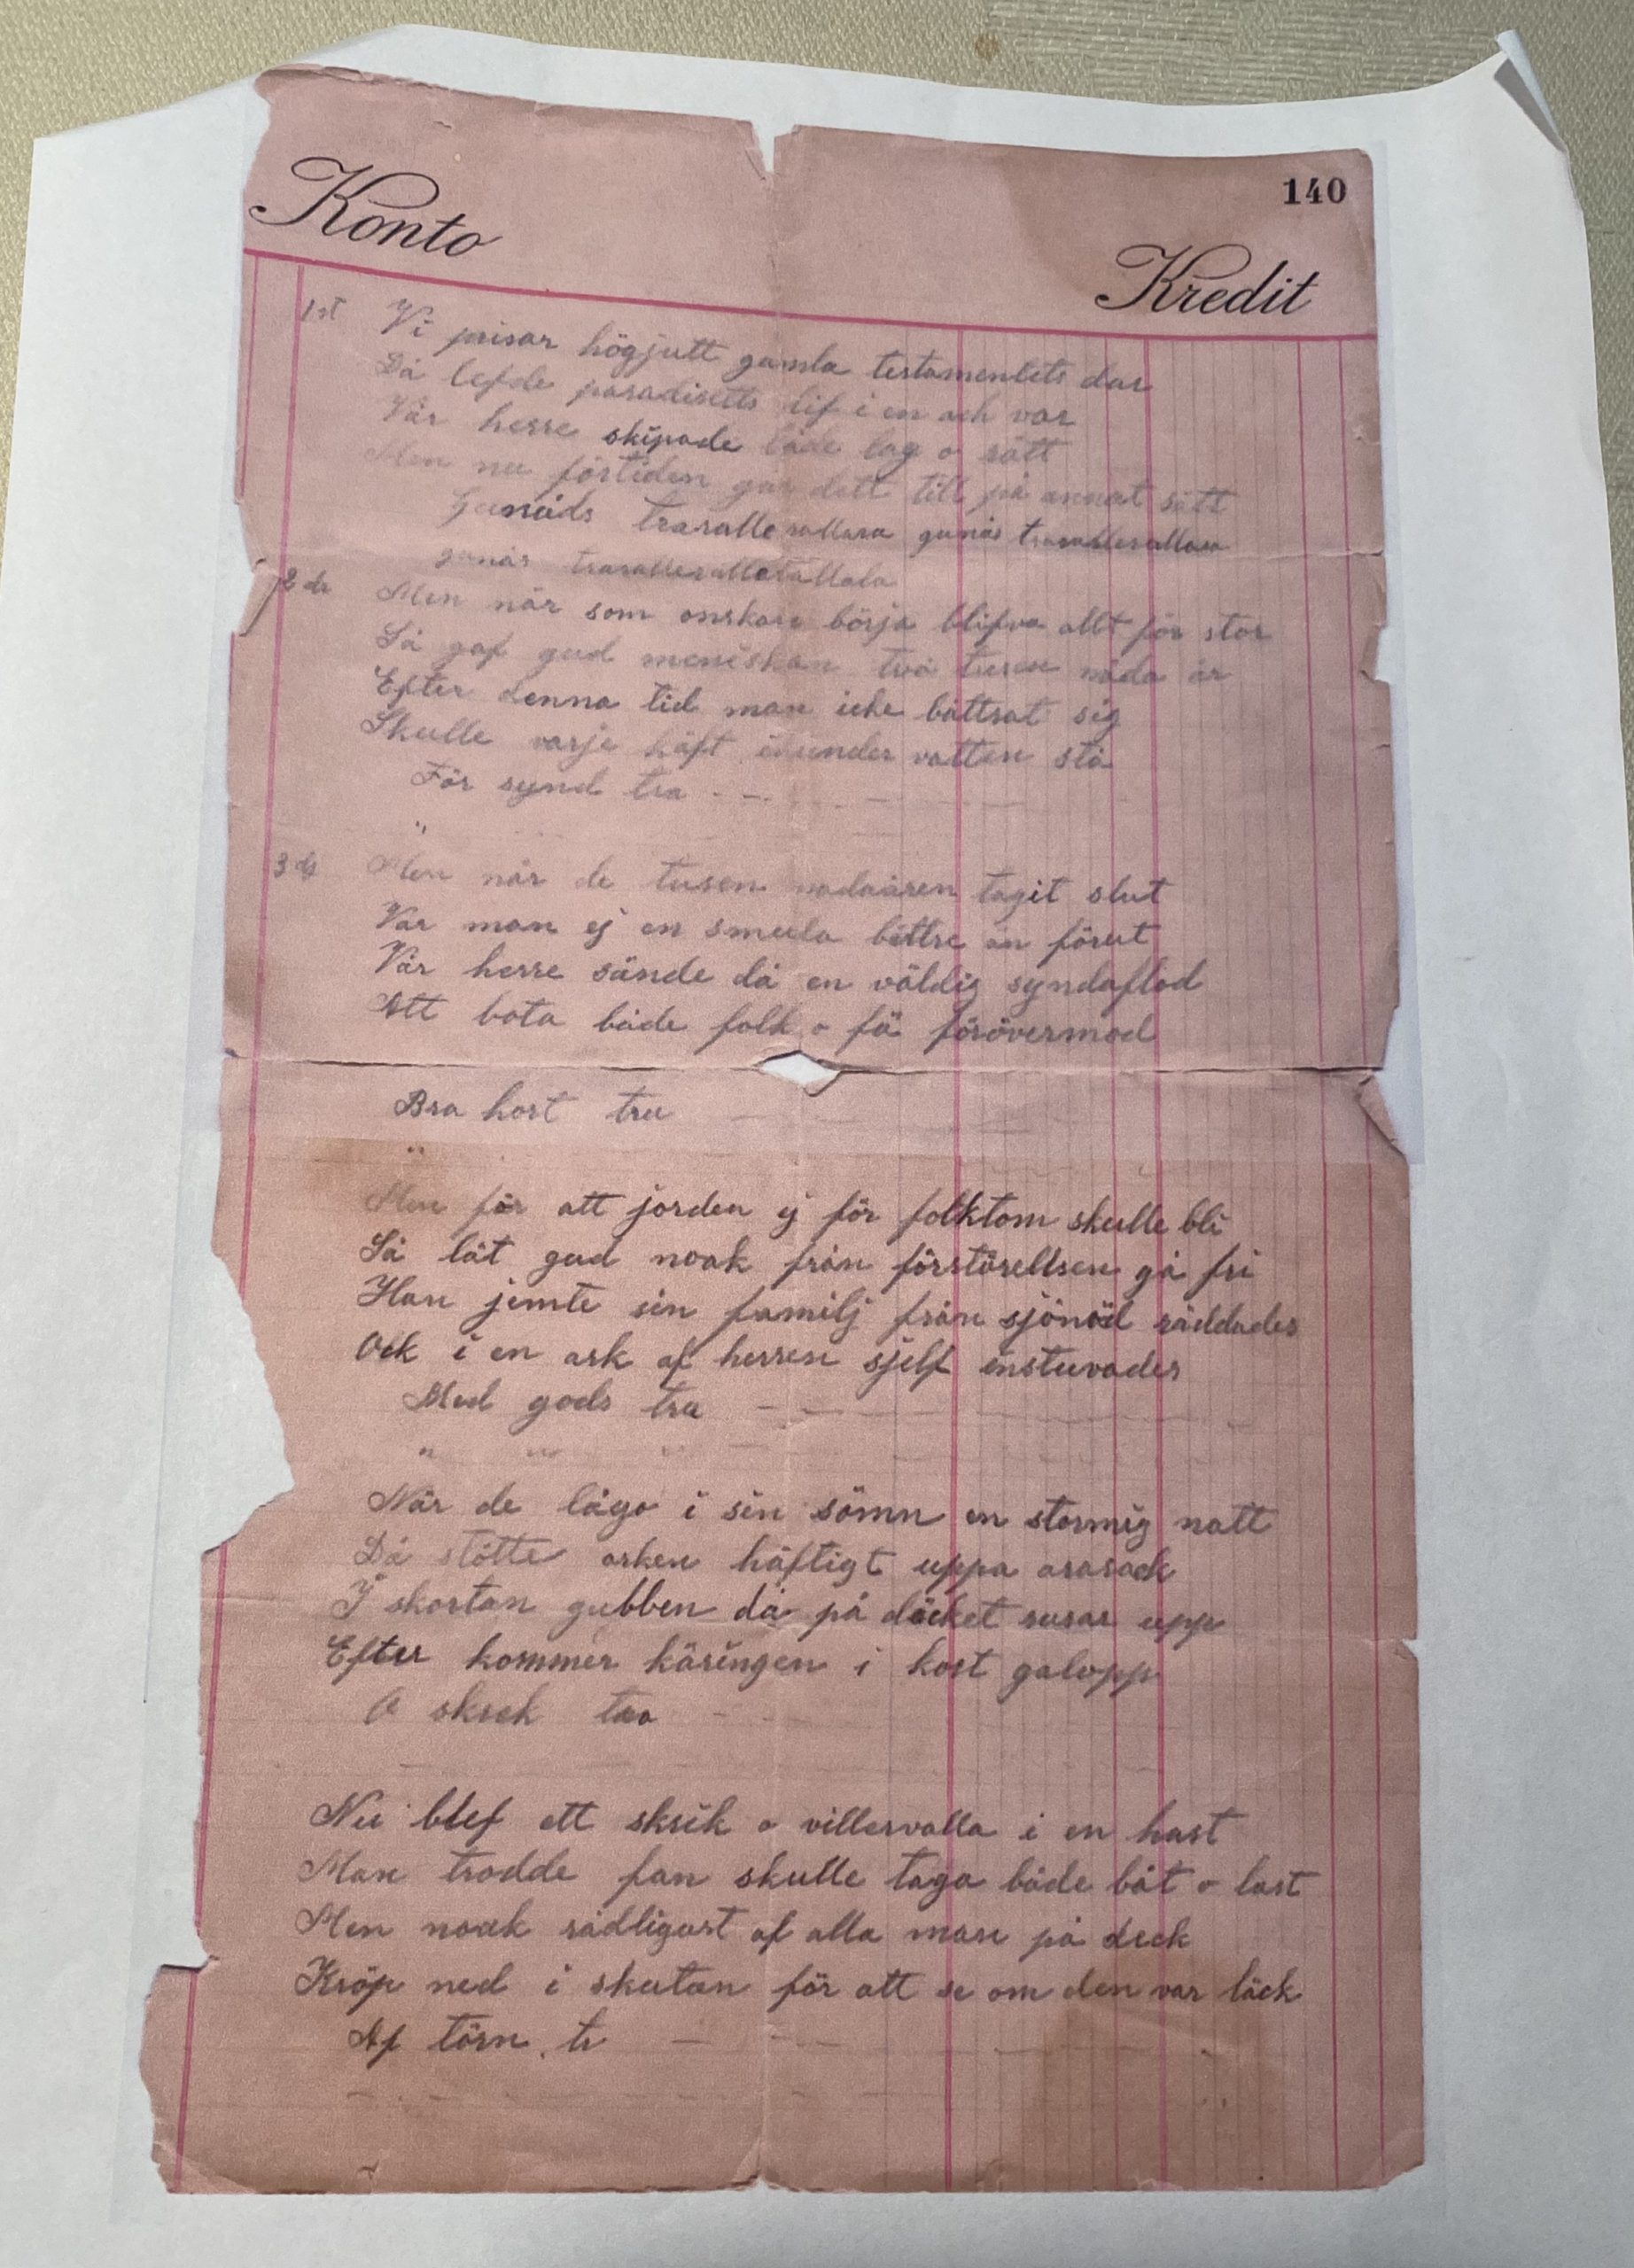 140
Konto
Kredit
1st Vi prisar högjutt gamla testamentets dar
Då lefde paradisetts lif i en och var
Vår herre skipade både lag o rätt
Men nu förtiden går dett till på annat sätt
Gunås trasallerallara gunås trasallerallara
gunås trasallerallatallala
2 dr Men när som onskan börja blifva allt för stor
Så gaf gud meniskan två tusen nåda år
Efter denna tid man icke bättrat sig
Skulle varje häft under vatten stå
För synd tra - -
"
3 dj Men när de tusen nadaåren tagit slut
Var man ej en smula bättre än förut
Vår herre sände då en väldig syndaflod
Att bota både folk o fä förövermod
Bra host tra
"
Men för att jorden ej för folktom skulle bli
Så lät gud noak från förstörellsen gå fri
Han jemte sin familj från sjönöd räddades
Ock i en ark af herren sjelf instuvades
Med gods tra - -
" " "
När de lågo i sin sömn en stormig natt
Då stötte arken häftigt uppa ararack
I skortan gubben då på däcket rusar upp
Efter kommer käringen i kort galopp
O skrek tra
Nu blef ett skrik o villervalla i en hast
Man trodde fan skulle taga både båt o last
Men noak rådligast af alla man på deck
Kröp ned i skutan för att se om den var läck
Af törn tr -